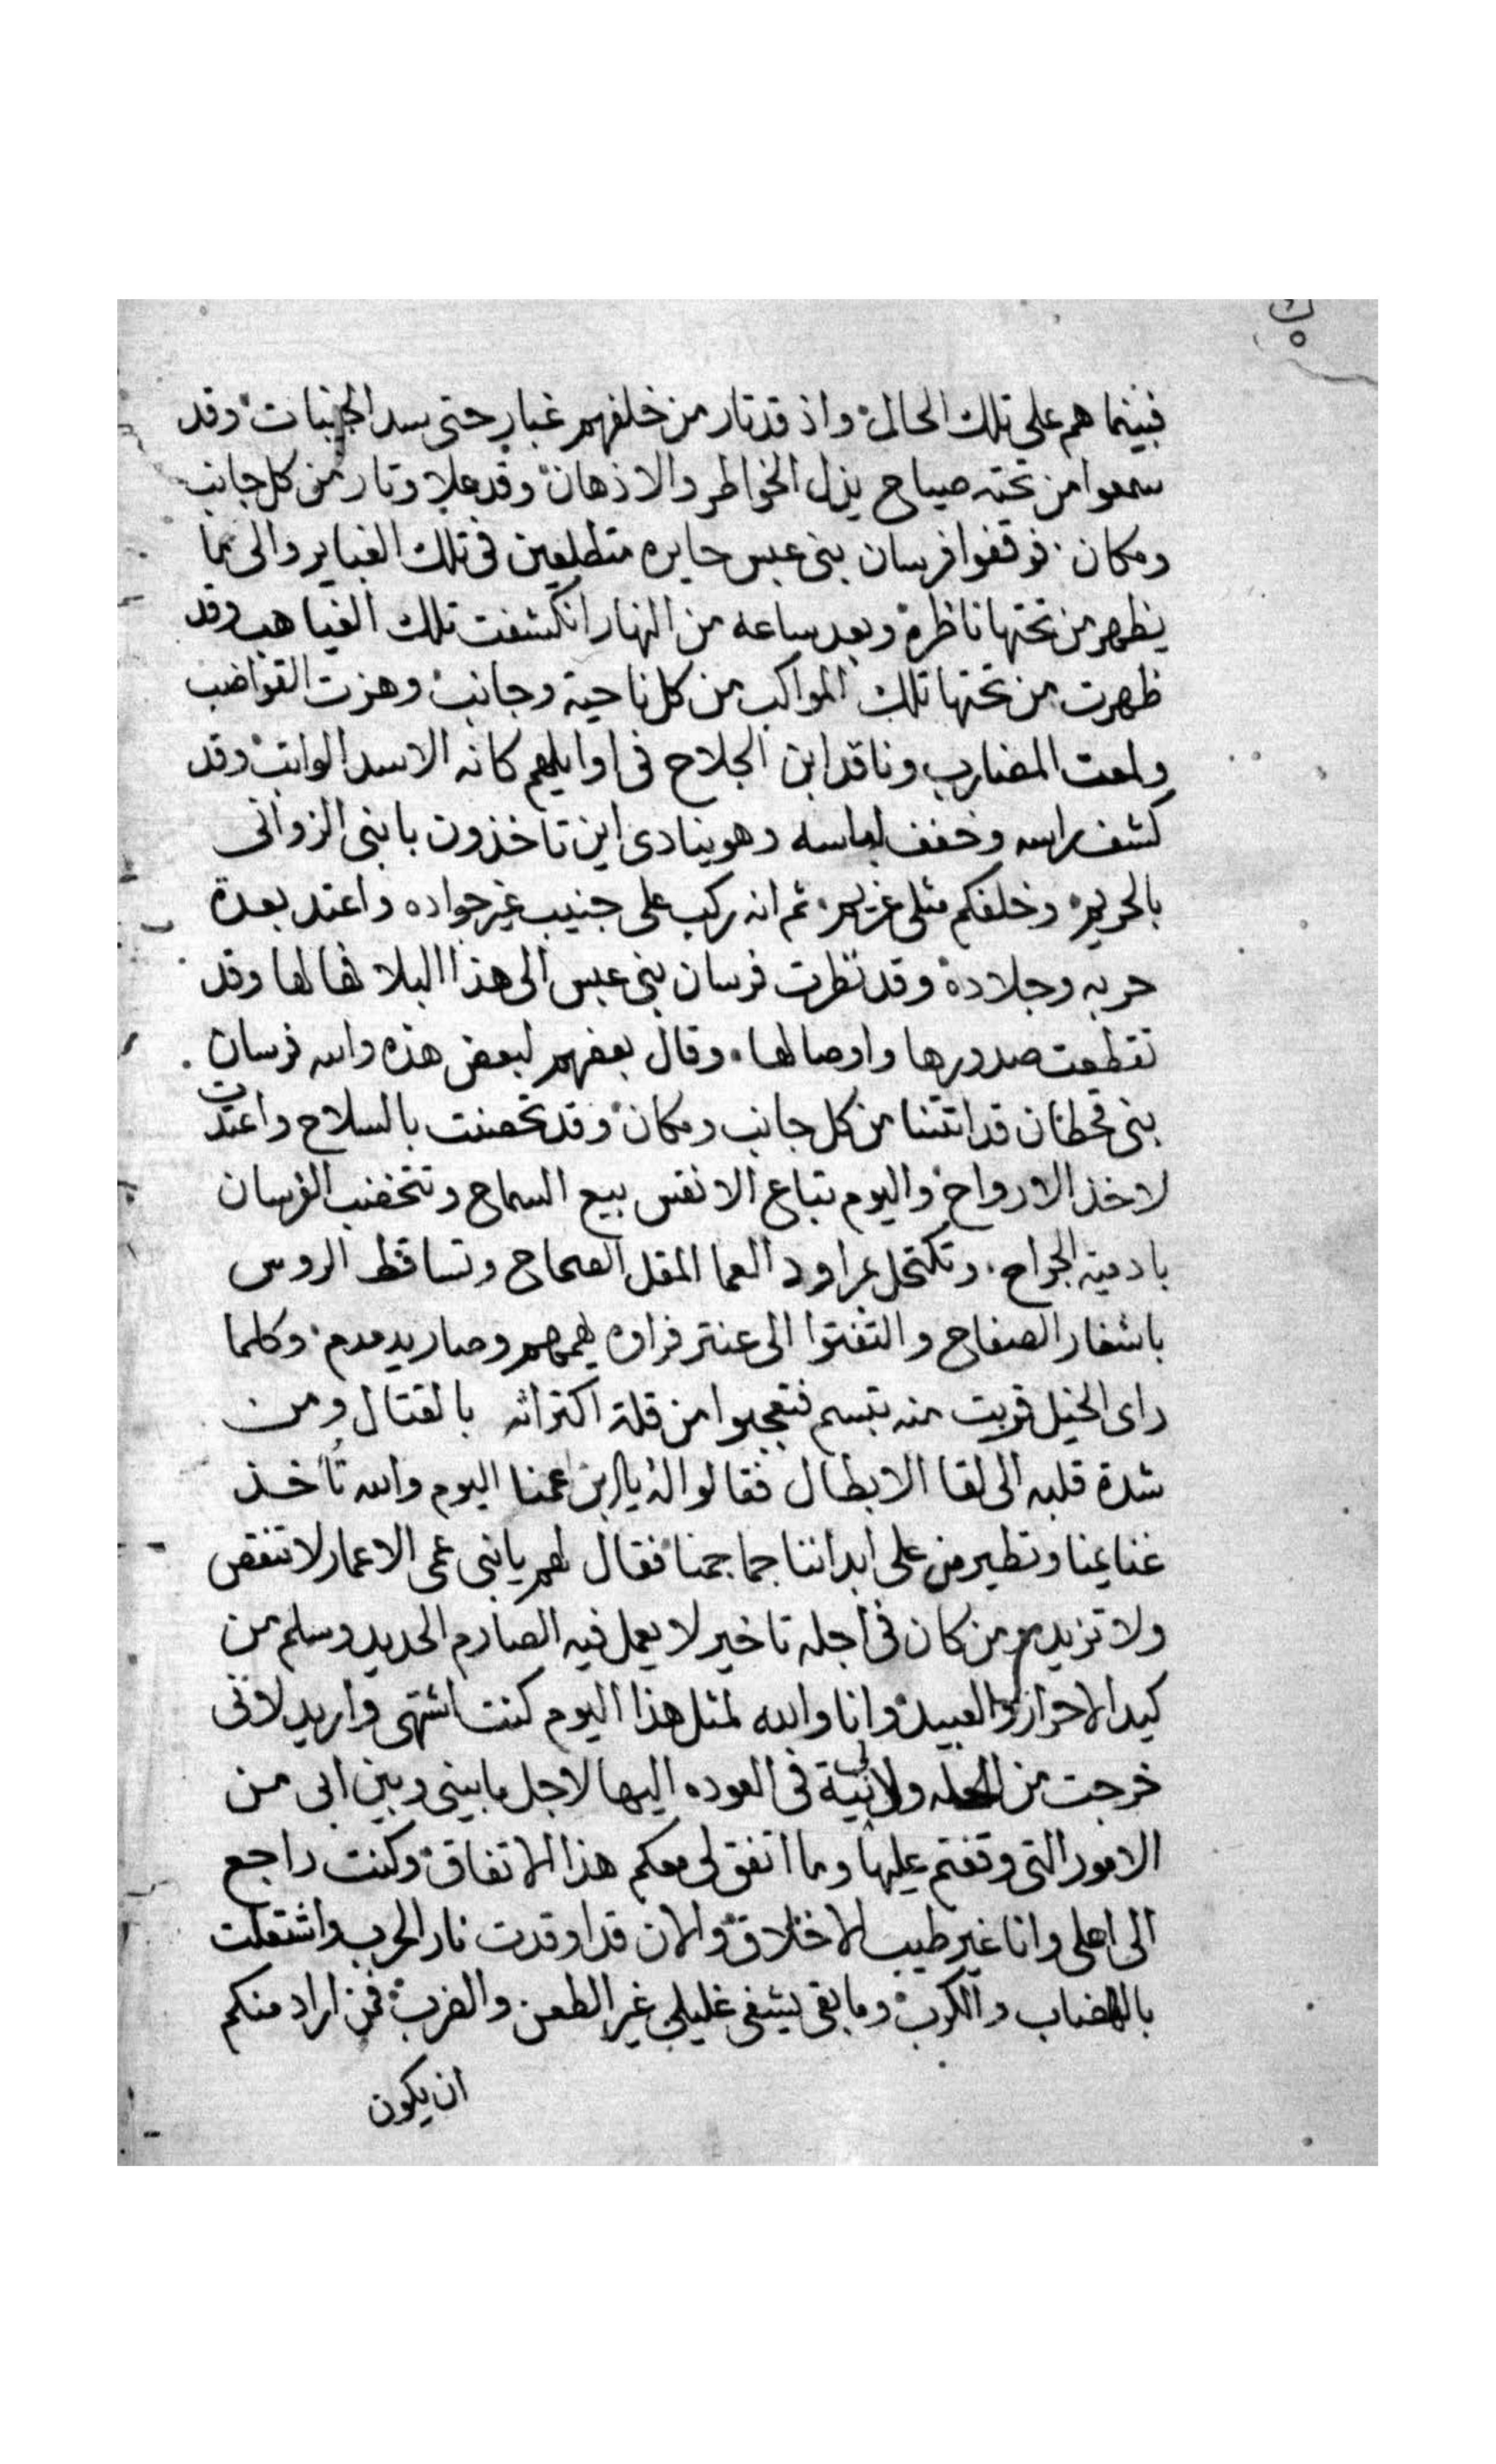 فبينما هم على تلك الحال واذ قد تار من خلفهم غبار حتى سد الجنبات وقد
سمعوا من تحته صياح يزل الخواطر والاذهان وقد علا وتار من كل جانب
ومكان فوقفوا فرسان بنى عبس حايره متطلعين فى تلك الغباير والى ما
يظهر من تحتها ناظرة وبعد ساعه من النهار انكشفت تلك الغياهب وقد
ظهرت من تحتها تلك المواكب من كل ناحية وجانب وهزت القواضب
ولمعت المضارب وناقد ابن الجلاح فى اوايلهم كانه الاسد الواتب وقد
كشف راسه وخفف لباسه وهو ينادى اين تاخذون يا بنى الزوانى
بالحريم وخلفكم مثلى غريم ثم انه ركب على جنيب غير جواده واعتد بعدة
حربه وجلاده وقد نظرت فرسان بنى عبس الى هذا البلا فهالها وقد
تقطعت صدورها واوصالها وقال بعضهم لبعض هذه والله فرسان
بنى قحطان قد اتتنا من كل جانب ومكان وقد تحصنت بالسلاح واعتدت
لاخذ الارواح واليوم تباع الانفس بيع السماح وتتخضب الفرسان
بادمية الجراح وتكتحل بمراود العما المقل الصحاح وتساقط الروس
باشفار الصفاح والتفتوا الى عنتر فراوه يهمهم وصار يدمدم وكلما
راى الخيل قربت منه تبسم فتعجبوا من قلة اكتراثه بالقتال ومن
شدة قلبه الى لقا الابطال فقالوا له يا ابن عمنا اليوم والله تاخذ
غنايمنا وتطير من على ابداننا جماجمنا فقال لهم يا بنى عمى الاعمار لا تنقص
ولا تزيد ومن كان فى اجله تاخير لا يعمل فيه الصارم الحديد وسلم من
كيد الاحرار والعبيد وانا والله لمثل هذا اليوم كنت اشتهى واريد لانى
خرجت من الحله ولا لى نية فى العوده اليها لاجل ما بينى وبين ابى من
الامور التى وقفتم عليها وما اتفق لى معكم هذا الاتفاق وكنت راجع
الى اهلى وانا غير طيب الاخلاق والان قد اوقدت نار الحرب واشتعلت
بالهضاب والكرب وما بقى يشفى غليلى غير الطعن والضرب فمن اراد منكم
ان يكون